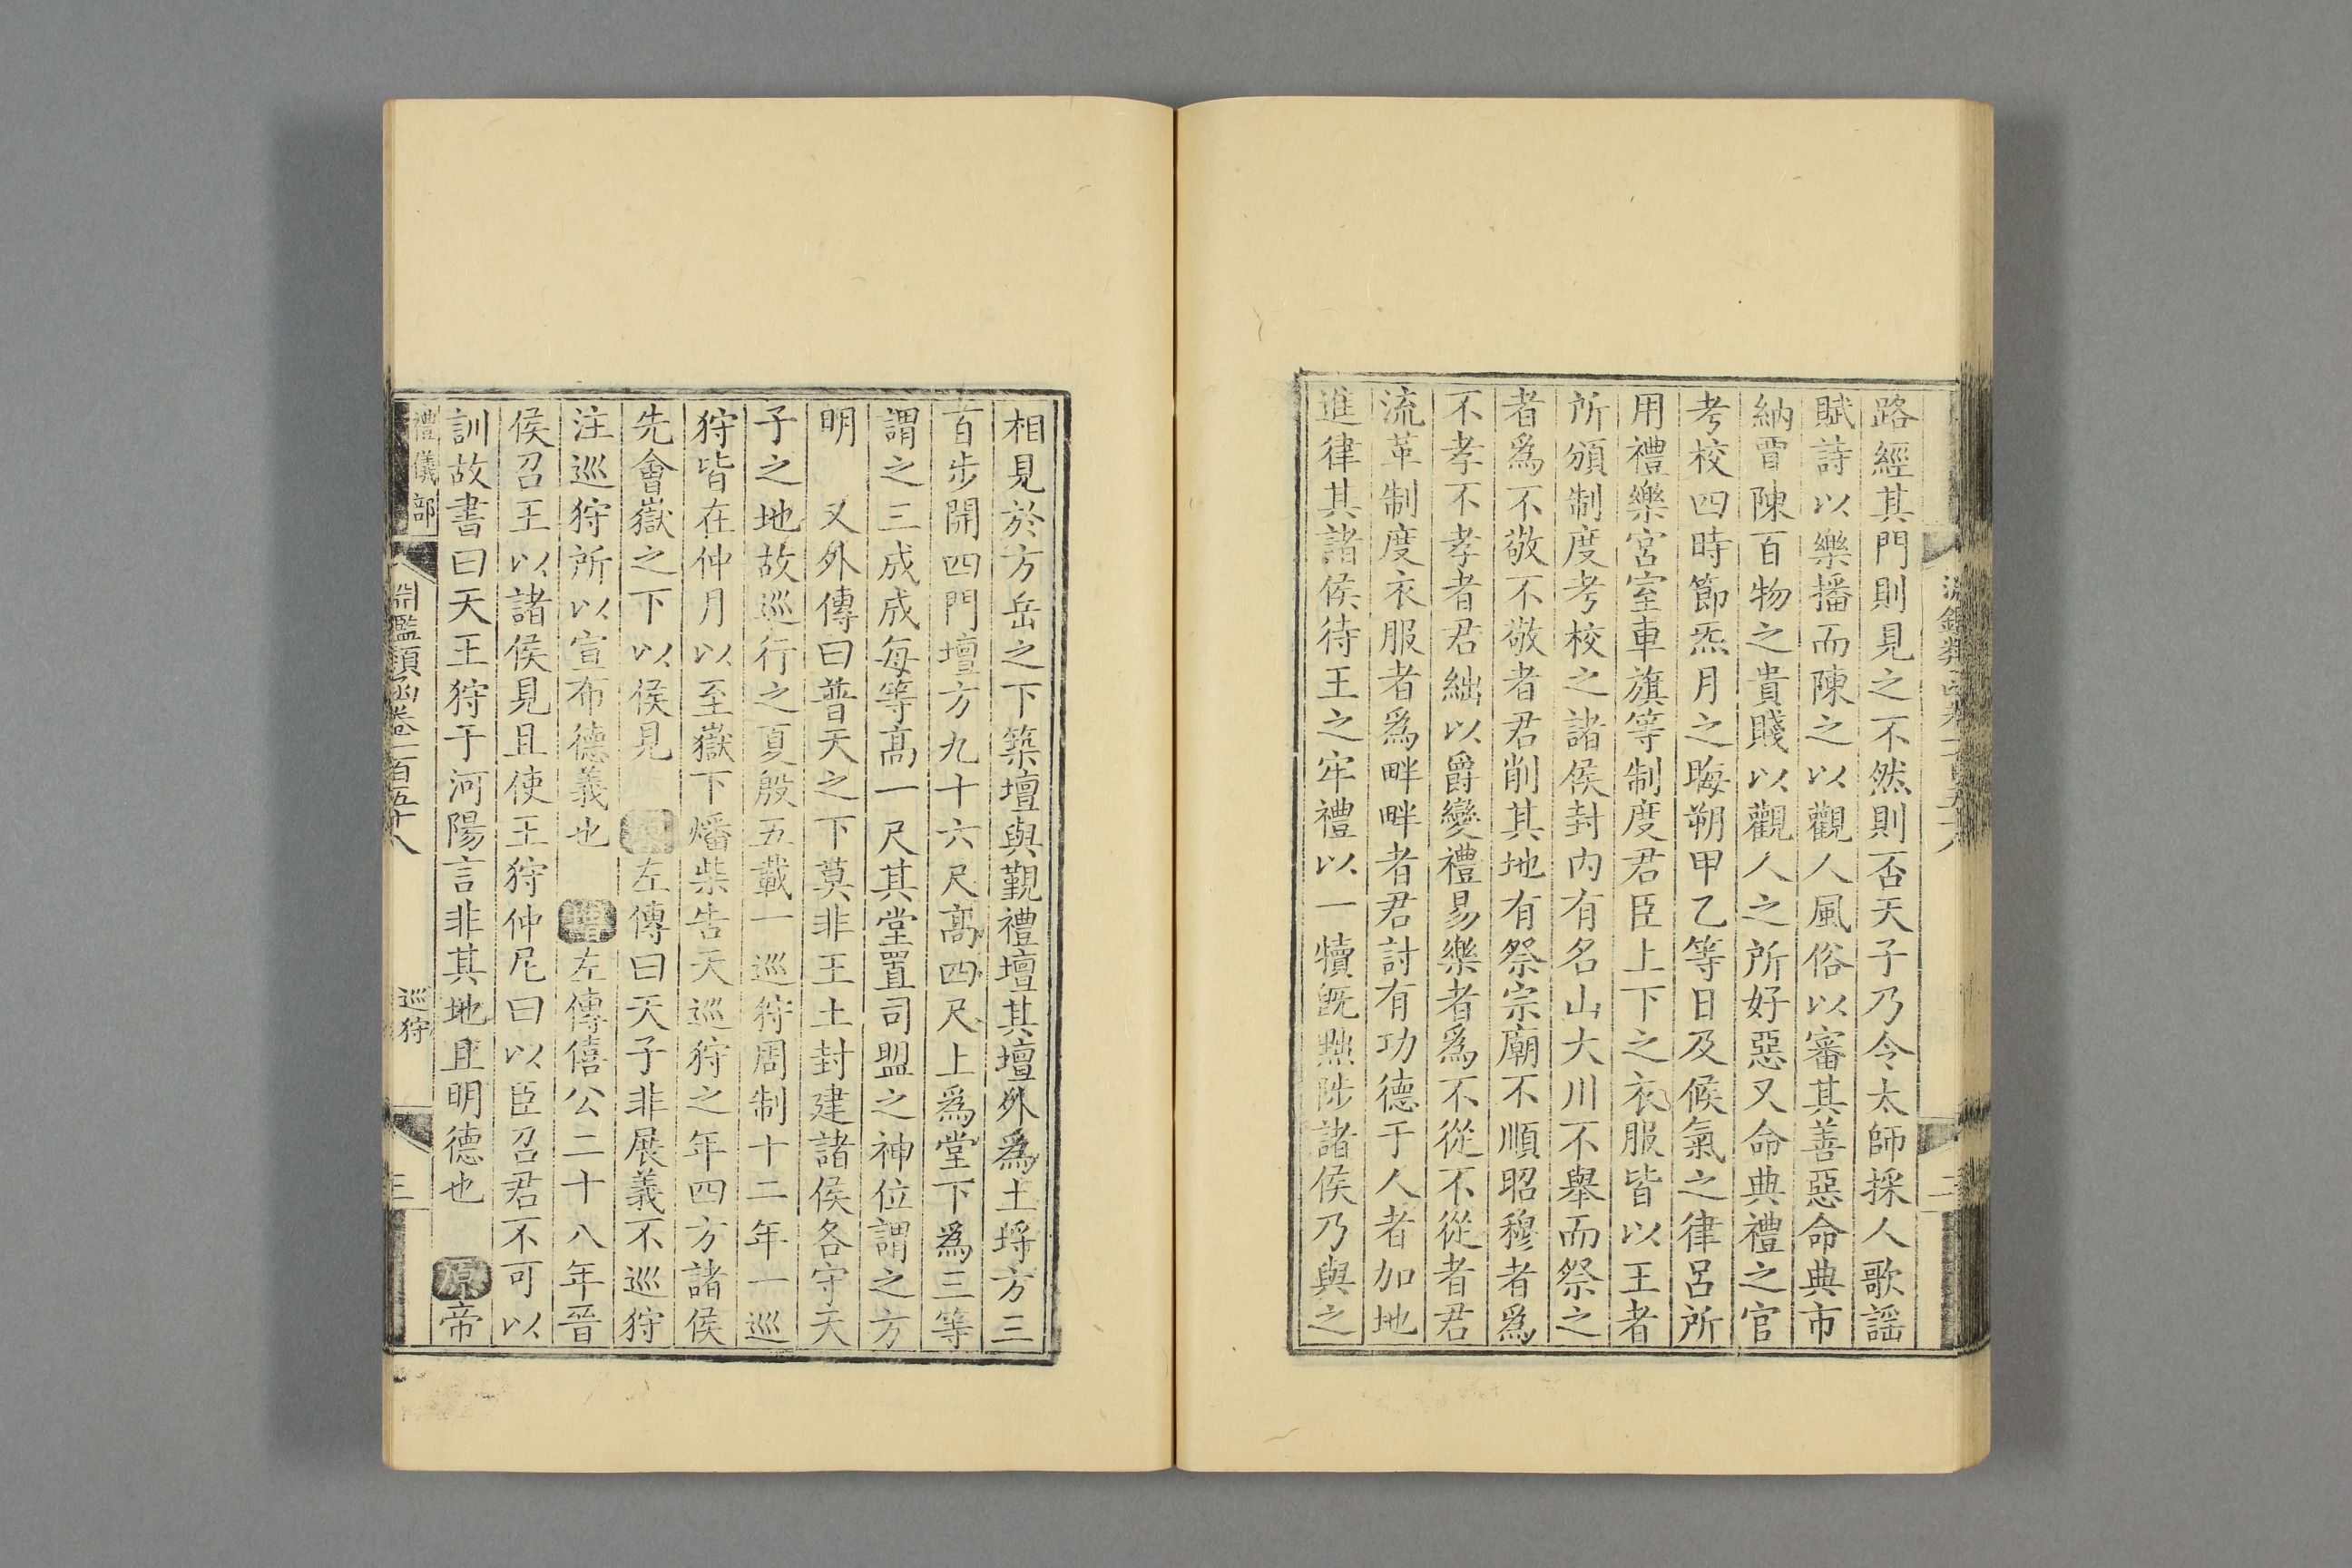 路經其門則見之不然則否天子乃令太師採人歌謡
賦詩以樂播而陳之以觀人風俗以審其善惡命典市
納賈陳百物之貴賤以觀人之所好惡又命典禮之官
考校四時節炁月之晦朔甲乙等日及候氣之律呂所
用禮樂宮室車旗等制度君臣上下之衣服皆以王者
所頒制度考校之諸侯封内有名山大川不舉而祭之
者爲不敬不敬者君削其地有祭宗廟不順昭穆者爲
不孝不孝者君絀以爵變禮易樂者爲不從不從者君
流革制度衣服者爲畔畔者君討有功德于人者加地
進律其諸侯待王之牢禮以一犢旣黜陟諸侯乃與之
相見於方岳之下築壇與覲禮壇其壇外爲土埒方三
百步開四門壇方九十六尺高四尺上爲堂下爲三等
謂之三成成每等高一尺其堂置司盟之神位謂之方
明 又外傳曰普天之下莫非王土封建諸侯各守天
子之地故巡行之夏殷五載一巡狩周制十二年一巡
狩皆在仲月以至嶽下燔柴告天巡狩之年四方諸侯
先會嶽之下以侯見 左傳曰天子非展義不巡狩
注巡狩所以宣布德義也 增左傳僖公二十八年晉
侯召王以諸侯見且使王狩仲尼曰以臣召君不可以
訓故書曰天王狩于河陽言非其地且明德也 原帝
禮儀部 淵鑑類函卷一百五十八 巡狩 三